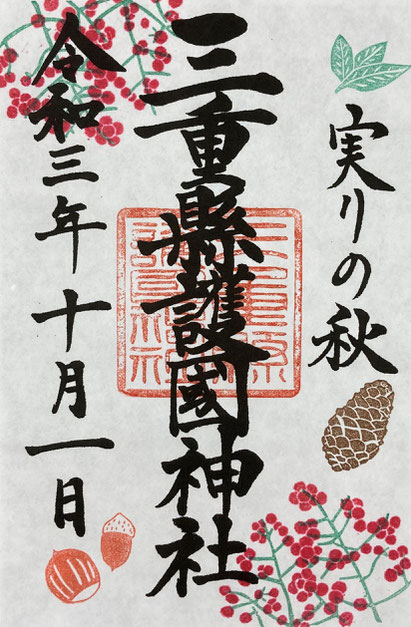 実りの秋
三重縣護國神社
令和三年十月一日